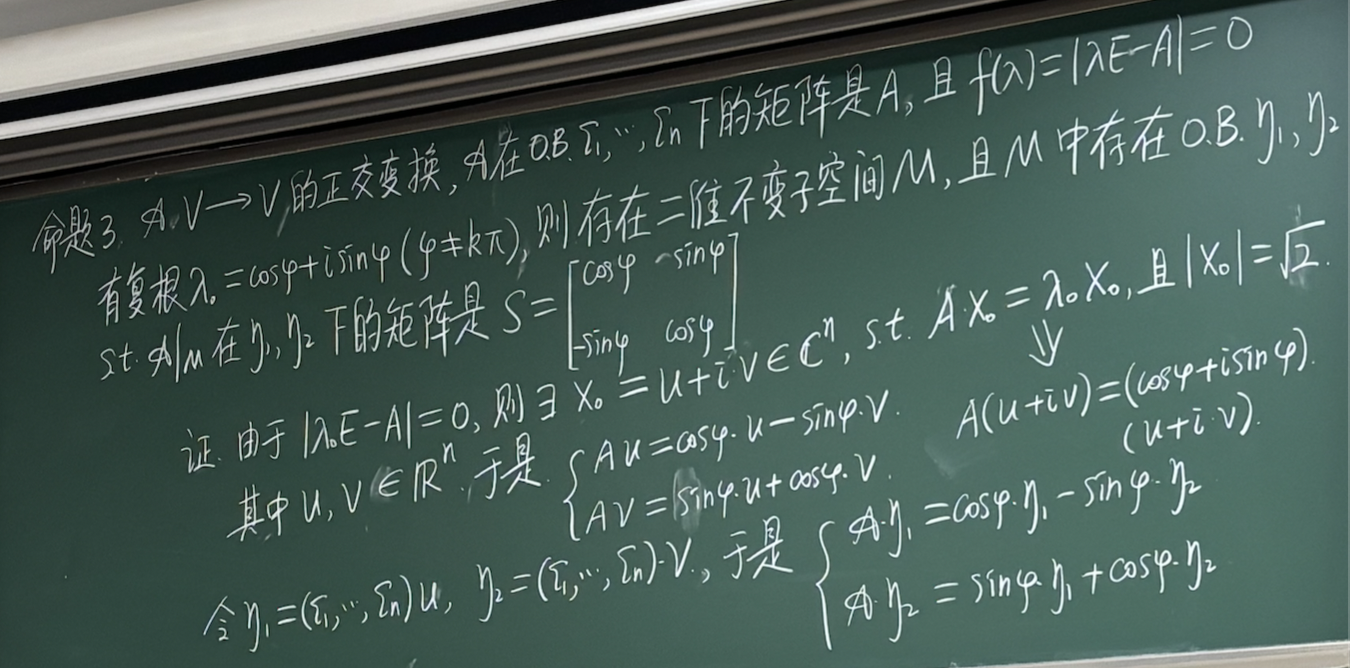 命题3. 𝒜: V→V的正交变换, 𝒜在O.B. ξ₁,…,ξₙ下的矩阵是A, 且 f(λ)=|λE-A|=0
有复根λ₀=cosφ+isinφ(φ≠kπ), 则存在二维不变子空间M, 且M中存在O.B. η₁, η₂
s.t. 𝒜|M在η₁, η₂下的矩阵是 S=[cosφ -sinφ
-sinφ cosφ]
证. 由于|λ₀E-A|=0, 则∃X₀=u+i·v∈ℂⁿ, s.t. A·X₀=λ₀X₀, 且|X₀|=√2.
⇓
其中u, v∈ℝⁿ. 于是 {Au=cosφ·u-sinφ·v.
Av=sinφ·u+cosφ·v.
A(u+iv)=(cosφ+isinφ).
(u+i·v).
令η₁=(ξ₁,…,ξₙ)u, η₂=(ξ₁,…,ξₙ)·v, 于是 {𝒜·η₁=cosφ·η₁-sinφ·η₂
𝒜·η₂=sinφ·η₁+cosφ·η₂